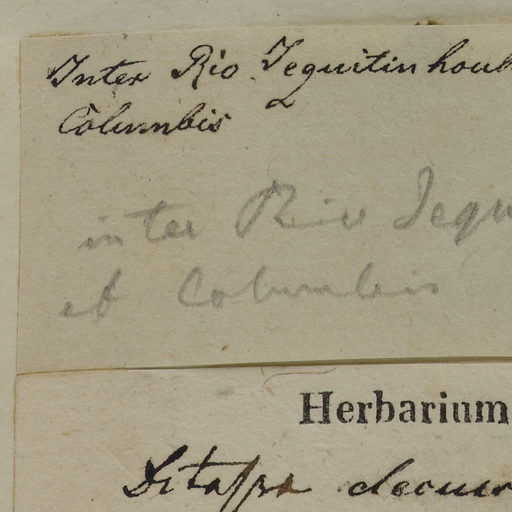 Inter Rio Jequitinhouh
Columbis
inter Rio Jequ
et Columbis
Herbarium
Ditassa decur